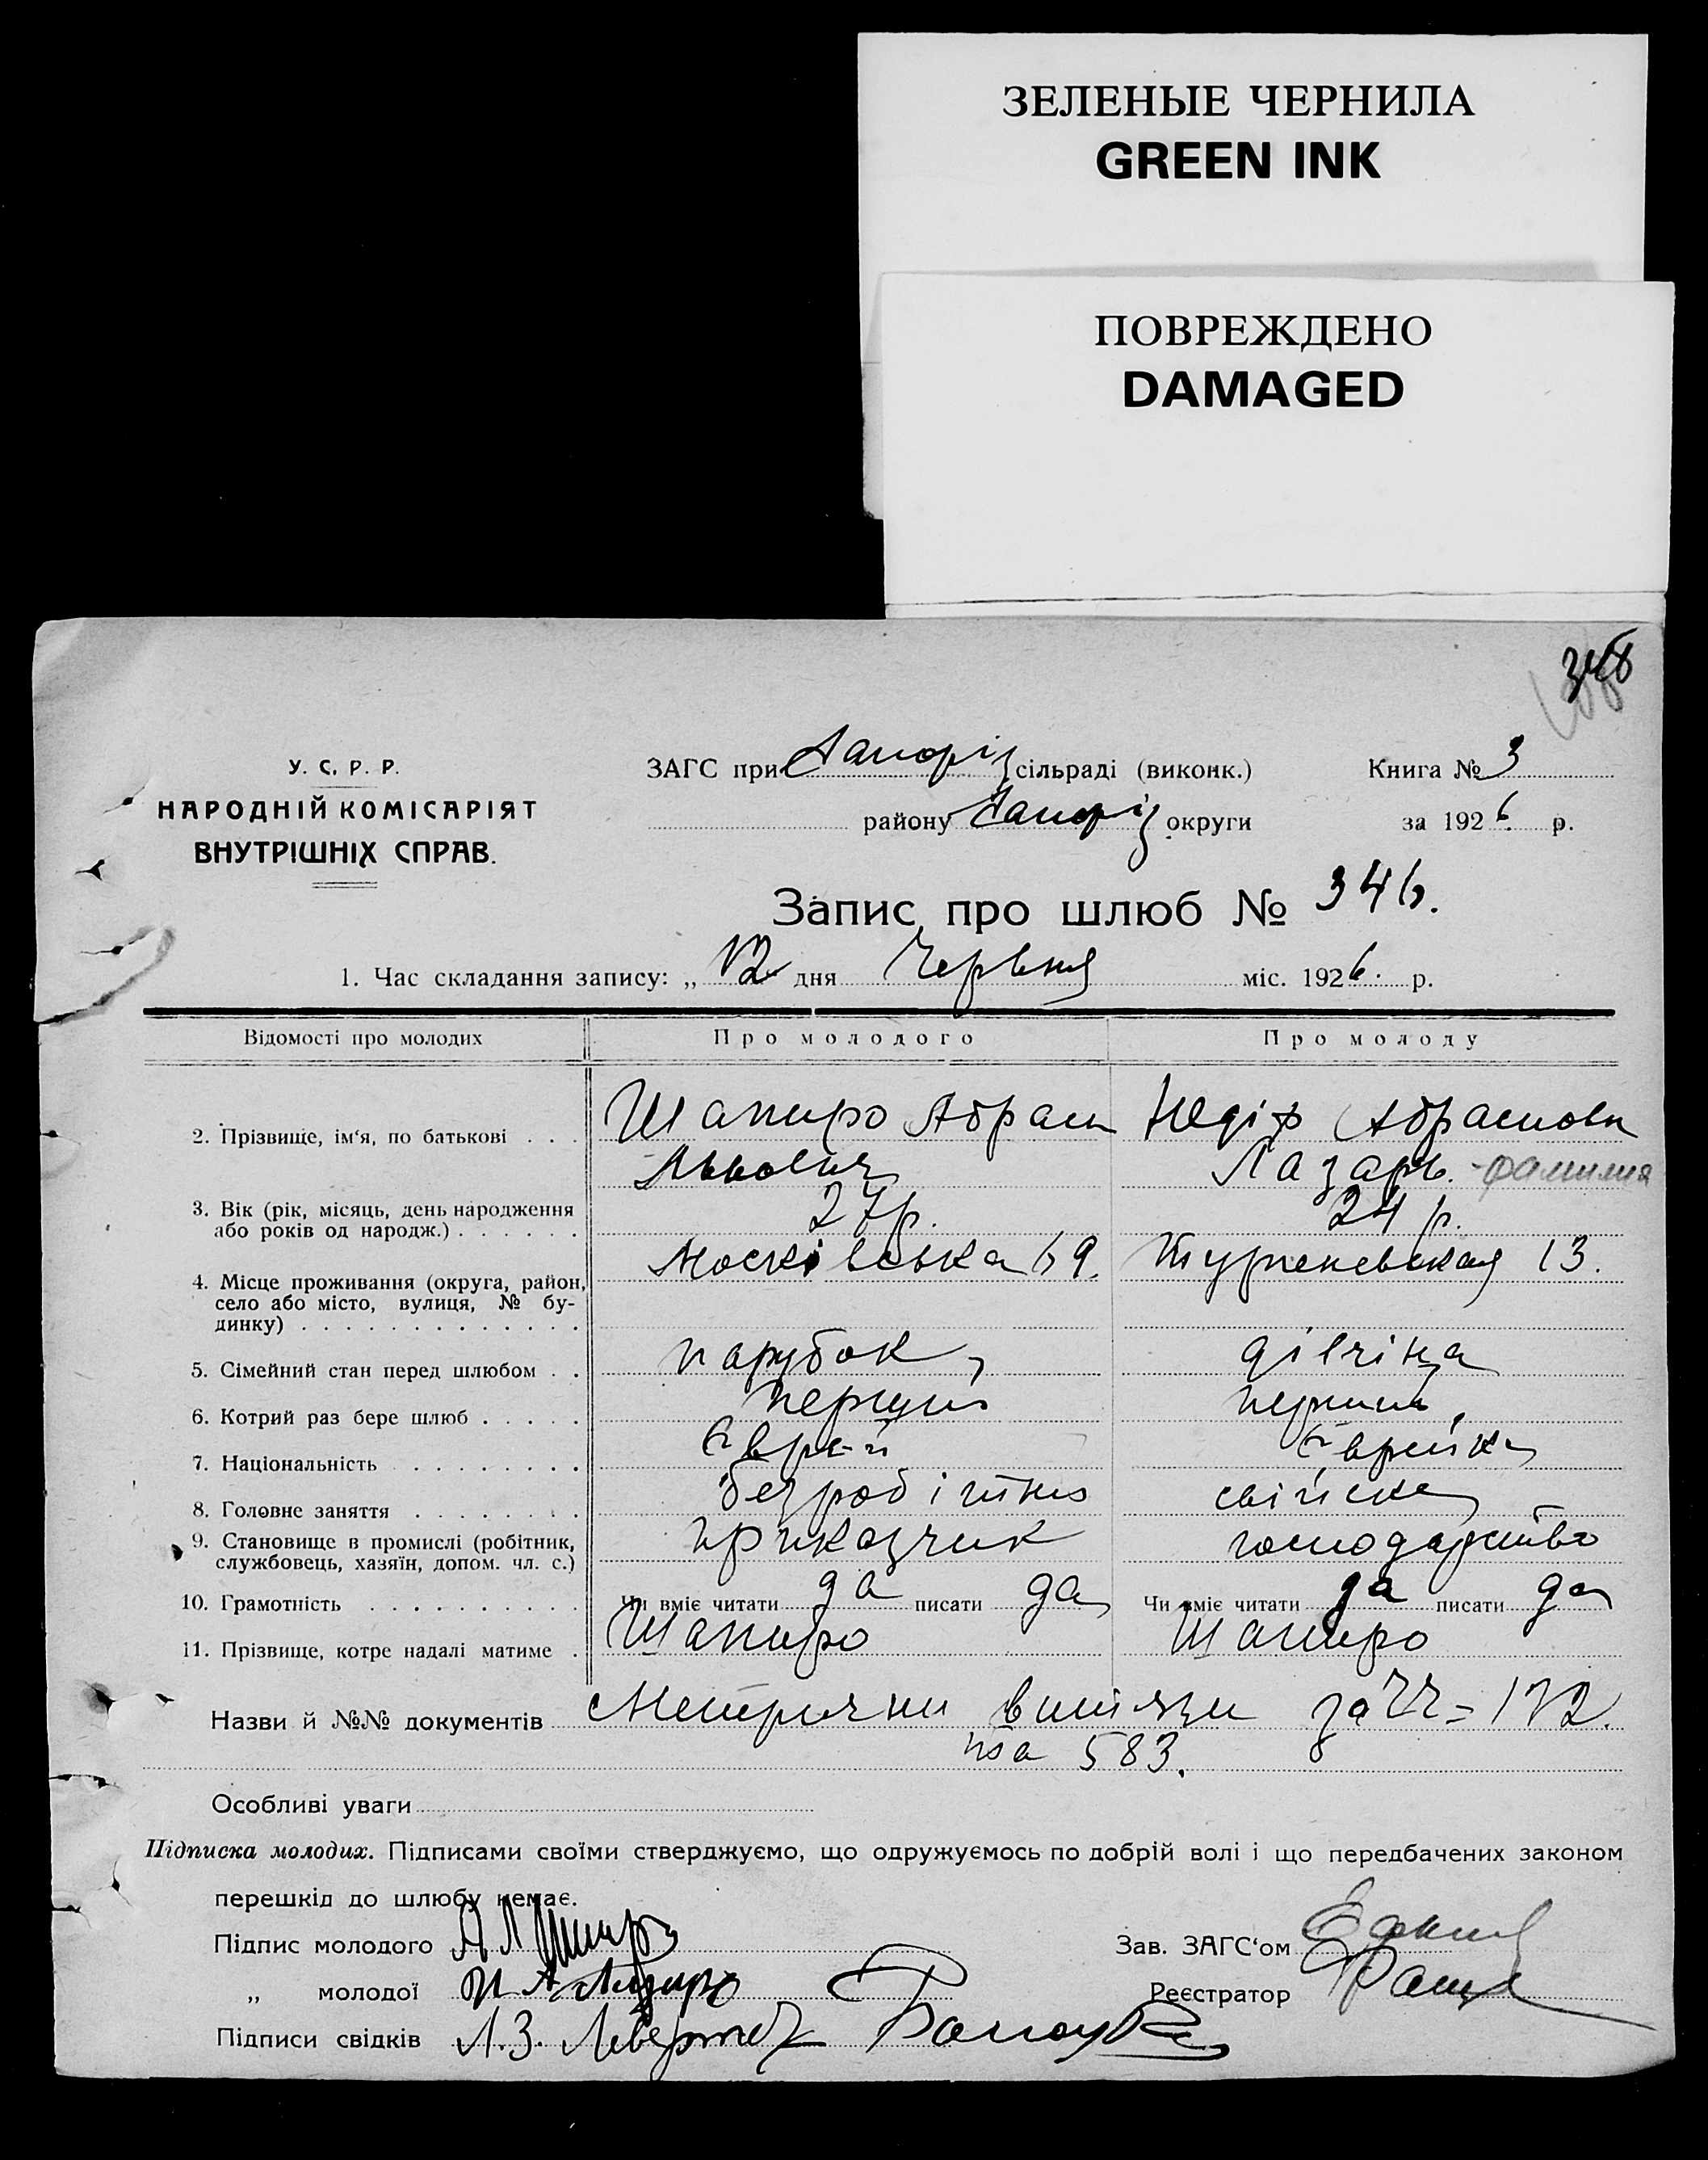 ЗЕЛЕНЫЕ ЧЕРНИЛА
GREEN INK
ПОВРЕЖДЕНО
DAMAGED
У. С. Р. Р.
НАРОДНІЙ КОМІСАРІЯТ
ВНУТРІШНІХ СПРАВ.
ЗАГС при Запоріз сільраді (виконк.) Книга № 3
району Запоріз округи за 1926 р.
Запис про шлюб № 346.
1. Час складання запису: „ 12 дня Червня міс. 1926. р.
Відомості про молодих Про молодого Про молоду
2. Прізвище, ім'я, по батькові . . . Шапиро Абрам Абрамовн
Львович Лазарв. - фамилия
3. Вік (рік, місяць, день народження 27 р. 24 р.
або років од народж.) . . . . . .
4. Місце проживання (округа, район, Московська 69. Тургеневская 13.
село або місто, вулиця, № бу-
динку) . . . . . . . . . . . . .
5. Сімейний стан перед шлюбом . . парубок, дівчіна
6. Котрий раз бере шлюб . . . . . перший перший,
7. Національність . . . . . . . . Єврей Єврейка
8. Головне заняття . . . . . . . . безробітний свійске
9. Становище в промислі (робітник, приказчик господарство
службовець, хазяїн, допом. чл. с.)
10. Грамотність . . . . . . . . . . Чи вміє читати да писати да Чи вміє читати да писати да
11. Прізвище, котре надалі матиме . Шапиро Шапиро
Назви й №№ документів Метрични витязи за 172.
583.
Особливі уваги
Підписка молодих. Підписами своїми стверджуємо, що одружуємось по добрій волі і що передбачених законом
перешкід до шлюбу немає.
Підпис молодого А Л Шапиро Зав. ЗАГС'ом
„ молодої Реєстратор
Підписи свідків Л. З.